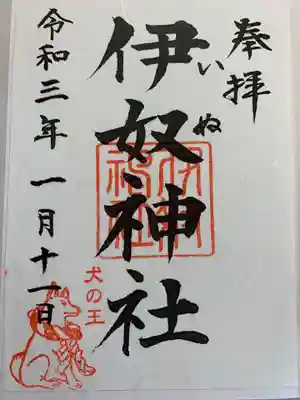 奉拝
伊奴神社
いぬ
令和三年一月十一日
犬の王